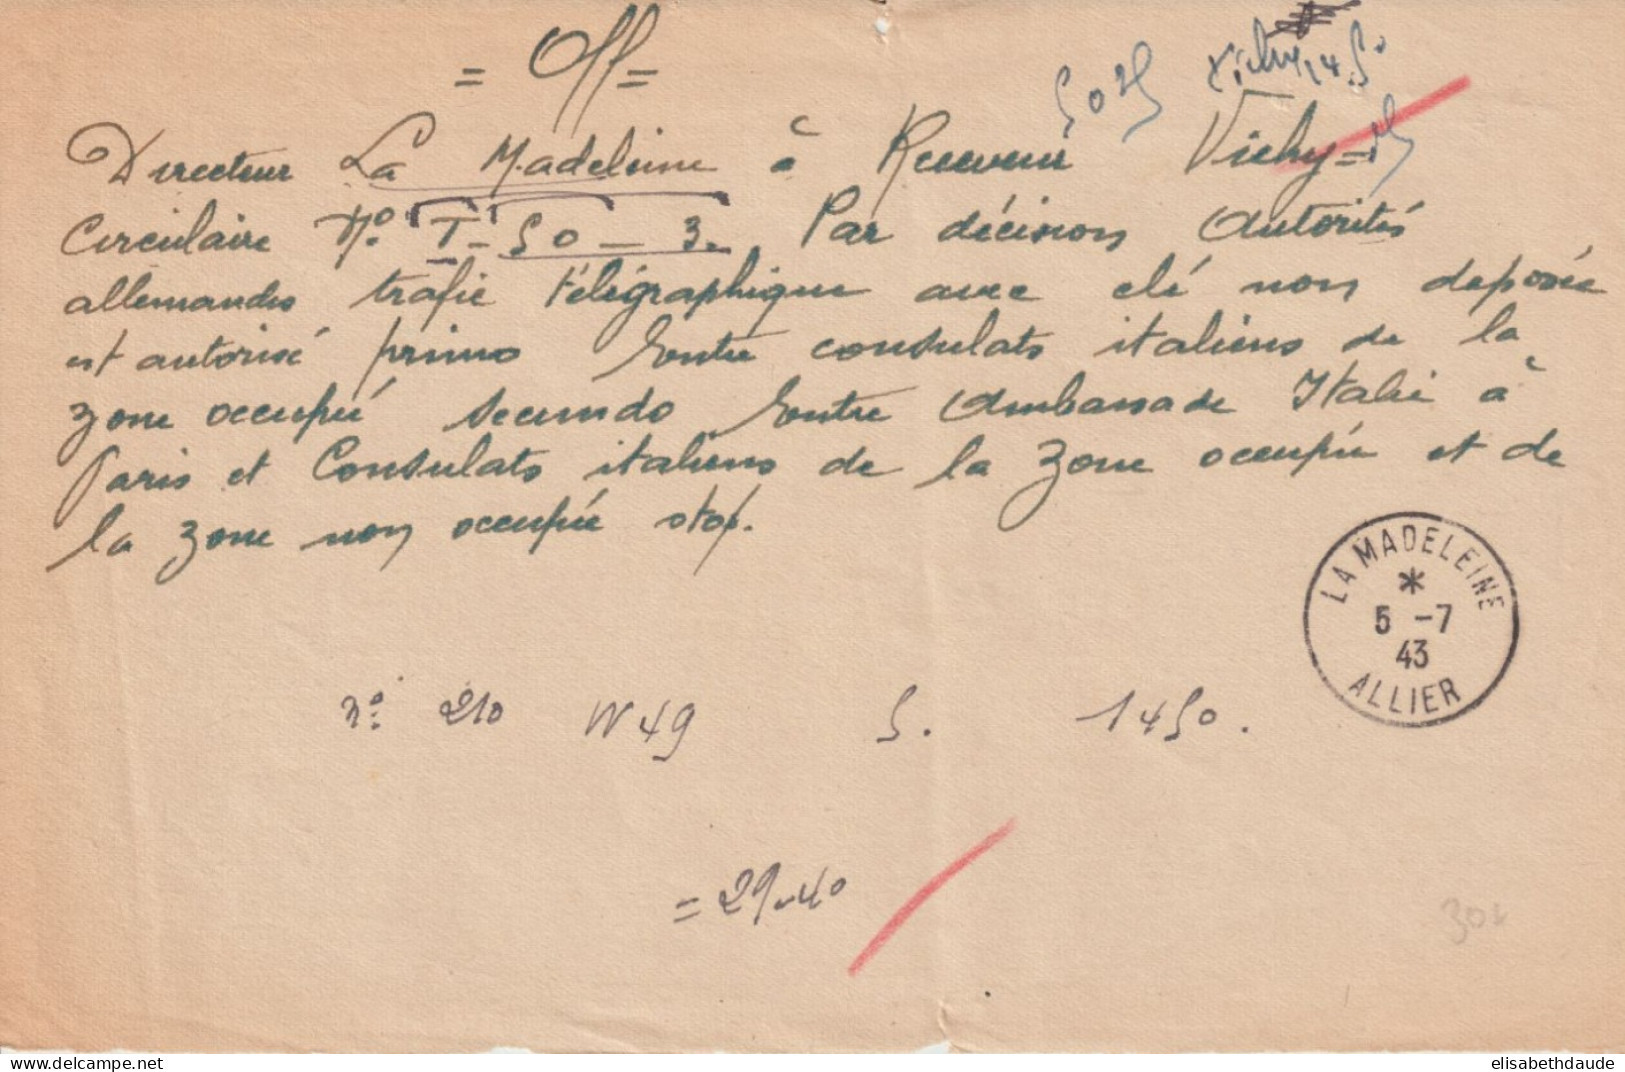 = Off =
Vichy 1450
Directeur La Madeleine à Receveur Vichy =
Circulaire N° T - 50 - 3. Par décision Autorités
allemandes trafic télégraphique avec clé non déposée
est autorisé primo Entre consulats italiens de la
zone occupée secundo Entre Ambassade Italie à
Paris et Consulats italiens de la zone occupée et de
la zone non occupée stop.
LA MADELEINE
*
5 -7
43
ALLIER
N° 210 W 49 S. 1450.
= 29-40
elisabethdaude